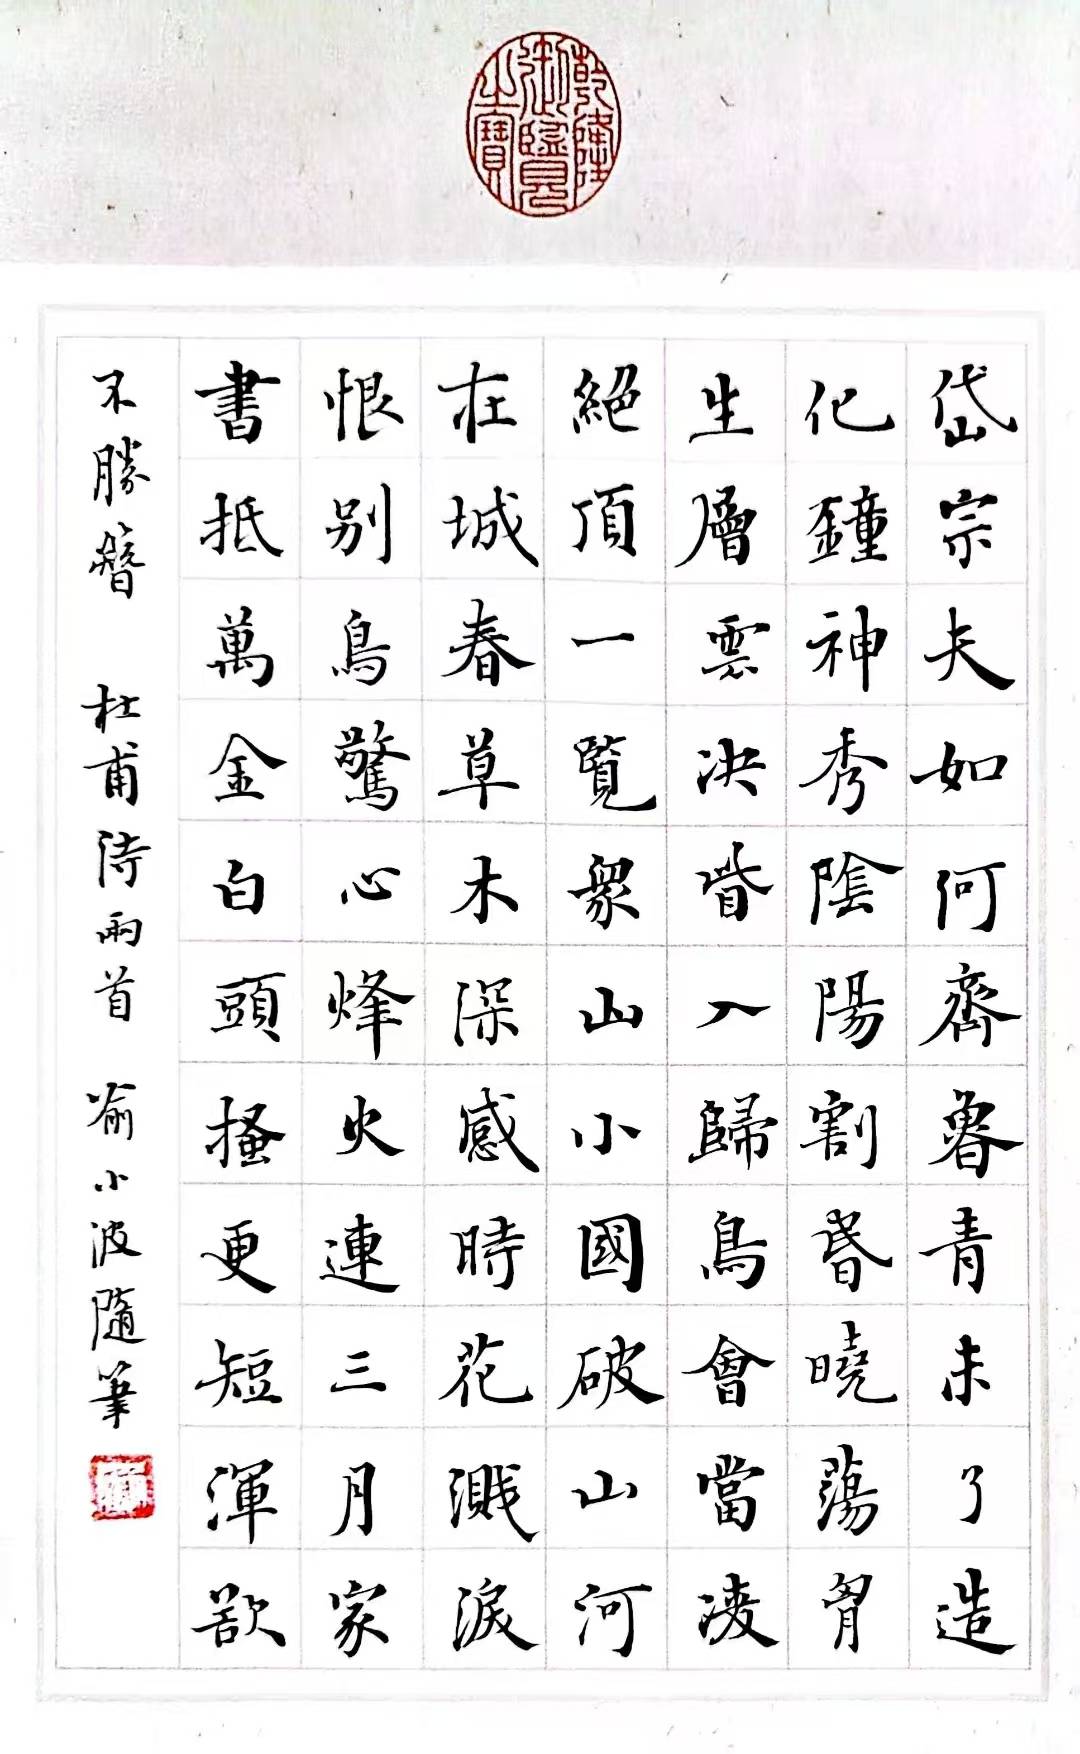 乾隆御覽之寶
岱宗夫如何齊魯青未了造
化鐘神秀陰陽割昏曉蕩胷
生層雲決眥入歸鳥會當凌
絕頂一覽衆山小國破山河
在城春草木深感時花濺淚
恨别鳥驚心烽火連三月家
書抵萬金白頭搔更短渾欲
不勝簪 杜甫詩兩首 俞小波隨筆